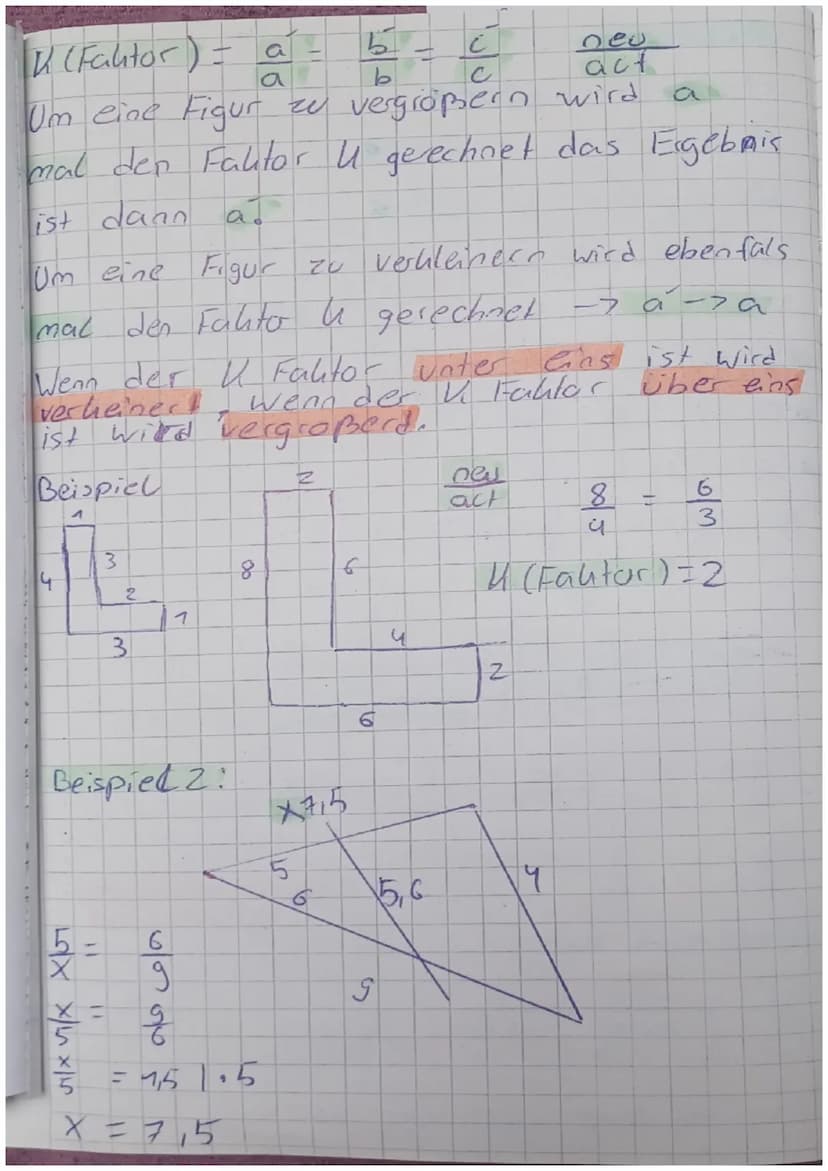 K (Faktor) = a´/a = b´/b = c´/c neu/act
Um eine Figur zu vergrößern wird a
mal den Faktor K gerechnet das Ergebnis
ist dann a´.
Um eine Figur zu verkleinern wird ebenfals
mal den Fakto K gerechnet -> a´ -> a
Wenn der K Faktor unter eins ist wird
verkeinert, wenn der K Faktor über eins
ist wird vergroßerd.
Beispiel
neu/act 8/4 = 6/3
K (Faktor) = 2
1
4
3
2
1
3
2
8
6
4
2
6
Beispiel 2:
x 7,5
5
6
5,6
y
9
5/x = 6/9
x/5 = 9/6
x/5 = 1,5 | · 5
x = 7,5